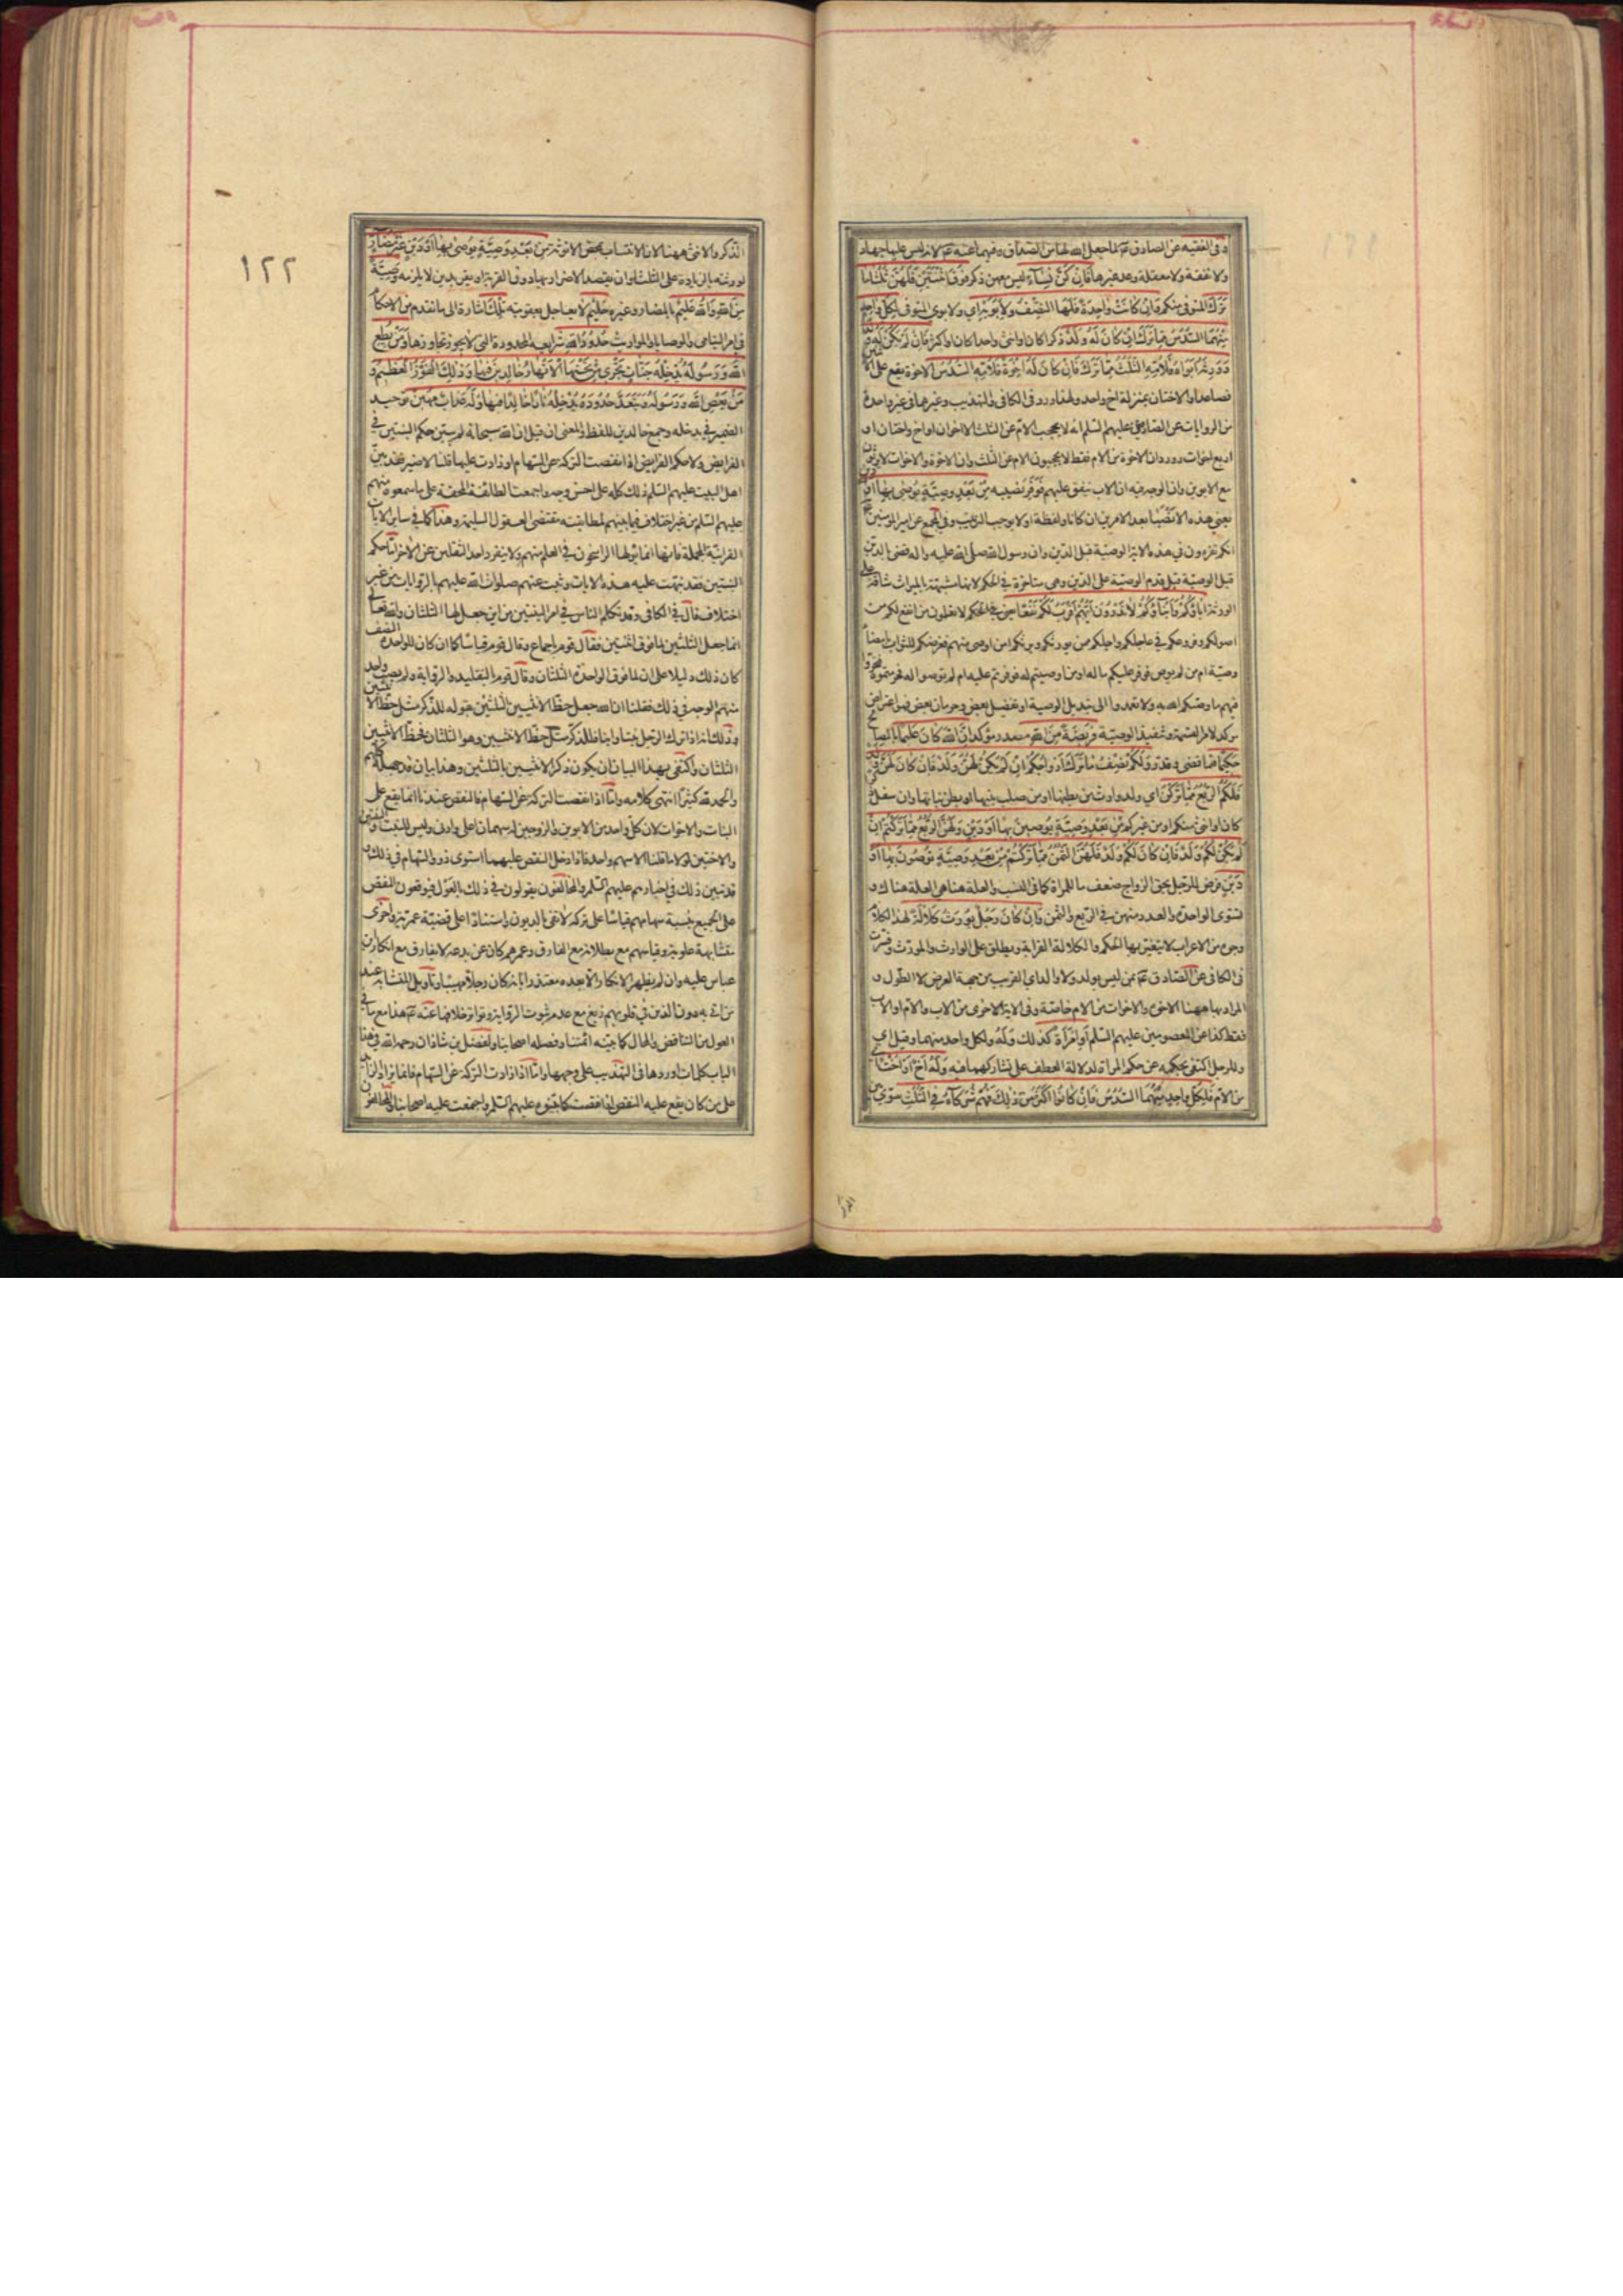 وفي الفقيه عن الصادق عم لما جعل الله لها من الصداق وفيهما عنه عم لانه ليس عليها جهاد
ولا نفقة ولا معقلة وعد غيرها فَإِنْ كُنَّ نِسَاءً ليس معهن ذكر فَوْقَ اثْنَتَيْنِ فَلَهُنَّ ثُلُثَا مَا
تَرَكَ المتوفى منكم وَإِنْ كَانَتْ وَاحِدَةً فَلَهَا النِّصْفُ وَلِأَبَوَيْهِ اي ولابوي المتوفى لِكُلِّ وَاحِدٍ
مِنْهُمَا السُّدُسُ مِمَّا تَرَكَ إِنْ كَانَ لَهُ وَلَدٌ ذكرا كان او انثى واحدا كان او اكثر فَإِنْ لَمْ يَكُنْ لَهُ
وَلَدٌ وَوَرِثَهُ أَبَوَاهُ فَلِأُمِّهِ الثُّلُثُ مما ترك فَإِنْ كَانَ لَهُ إِخْوَةٌ فَلِأُمِّهِ السُّدُسُ الاخوة يقع على الاثنين
فصاعدا والاختان بمنزلة اخ واحد ولهذا ورد في الكافي والتهذيب وغيرهما في غير واحدة
من الروايات عن الصادق عليهم السلم انه لا يحجب الام عن الثلث الا اخوان او اخ واختان او
اربع اخوات وورد ان الاخوة من الام فقط لا يحجبون الام عن الثلث وان الاخوة والاخوات لا يرثون
مع الابوين وان الوجه فيه ان الاب ينفق عليهم فوفر نصيبه مِنْ بَعْدِ وَصِيَّةٍ يُوصِي بِهَا أَوْ دَيْنٍ
يعني هذه الانصباء بعد الامرين ان كانا ولفظة او لا يوجب الترتيب وفي المجمع عن امير المؤمنين عم
انكم تقرءون في هذه الاية الوصية قبل الدين وان رسول الله صلى الله عليه واله قضى بالدين
قبل الوصية قيل قدم الوصية على الدين وهي متاخرة في الحكم لانها مشبهة بالميراث شاقة على
الورثة آبَاؤُكُمْ وَأَبْنَاؤُكُمْ لَا تَدْرُونَ أَيُّهُمْ أَقْرَبُ لَكُمْ نَفْعًا يعني في الحكم لا تعلمون من انفع لكم من
اصولكم وفروعكم في عاجلكم واجلكم ممن يورثكم ويرثكم امن اوصى منهم فعرضكم للثواب بامضاء
وصيته ام من لم يوص فوفر عليكم ماله او من اوصيتم له فوفرتم عليه ام لم توصوا له فحرمتموه فتحروا
فيهم ما وصيكم الله به ولا تعمدوا الى تبديل الوصية او تفضيل بعض وحرمان بعض فهو اعتراض
مؤكد لامر القسمة وتنفيذ الوصية فَرِيضَةً مِنَ اللهِ مصدر مؤكد إِنَّ اللهَ كَانَ عَلِيمًا بالمصالح
حَكِيمًا فيما قضى وقدر وَلَكُمْ نِصْفُ مَا تَرَكَ أَزْوَاجُكُمْ إِنْ لَمْ يَكُنْ لَهُنَّ وَلَدٌ فَإِنْ كَانَ لَهُنَّ وَلَدٌ
فَلَكُمُ الرُّبُعُ مِمَّا تَرَكْنَ اي ولد وارث من بطنها او من صلب بنيها او بطن بناتها وان سفل
كان او انثى منكم او من غيركم مِنْ بَعْدِ وَصِيَّةٍ يُوصِينَ بِهَا أَوْ دَيْنٍ وَلَهُنَّ الرُّبُعُ مِمَّا تَرَكْتُمْ إِنْ
لَمْ يَكُنْ لَكُمْ وَلَدٌ فَإِنْ كَانَ لَكُمْ وَلَدٌ فَلَهُنَّ الثُّمُنُ مِمَّا تَرَكْتُمْ مِنْ بَعْدِ وَصِيَّةٍ تُوصُونَ بِهَا أَوْ
دَيْنٍ فرض للرجل بحق الزواج ضعف ما للمراة كما في النسب والعلة هنا هي العلة هناك و
تستوى الواحدة والعدد منهن في الربع والثمن وَإِنْ كَانَ رَجُلٌ يُورَثُ كَلَالَةً لهذا الكلام
وجوه من الاعراب لا يتغير بها الحكم والكلالة القرابة ويطلق على الوارث والمورث وفسرت
في الكافي عن الصادق عم بمن ليس بولد ولا والد اي القريب من جهة العرض لا الطول و
المراد بها ههنا الاخوة والاخوات من الام خاصة وفي الاية الاخرى من الاب والام او الاب
فقط كذا عن المعصومين عليهم السلم أَوِ امْرَأَةٌ كذلك وَلَهُ ولكل واحد منهما وقيل اي
وللرجل اكتفى بحكمه عن حكم المراة لدلالة العطف على تشاركهما فيه وَلَهُ أَخٌ أَوْ أُخْتٌ اي
من الام فَلِكُلِّ وَاحِدٍ مِنْهُمَا السُّدُسُ فَإِنْ كَانُوا أَكْثَرَ مِنْ ذَلِكَ فَهُمْ شُرَكَاءُ فِي الثُّلُثِ سوّي بين
١٢٢
الذكر والانثى ههنا لان الانتساب بمحض الانوثة مِنْ بَعْدِ وَصِيَّةٍ يُوصَى بِهَا أَوْ دَيْنٍ غَيْرَ مُضَارٍّ
لورثته بالزيادة على الثلث او ان يقصد الاضرار بها دون القربة او يقر بدين لا يلزمه وَصِيَّةً
مِنَ اللهِ وَاللهُ عَلِيمٌ بالمضار وغيره حَلِيمٌ لا يعاجل بعقوبته تِلْكَ اشارة الى ما تقدم من الاحكام
في امر اليتامى والوصايا والمواريث حُدُودُ اللهِ شرايعه المحدودة التي لا يجوز تجاوزها وَمَنْ يُطِعِ
اللهَ وَرَسُولَهُ يُدْخِلْهُ جَنَّاتٍ تَجْرِي مِنْ تَحْتِهَا الْأَنْهَارُ خَالِدِينَ فِيهَا وَذَلِكَ الْفَوْزُ الْعَظِيمُ وَ
مَنْ يَعْصِ اللهَ وَرَسُولَهُ وَيَتَعَدَّ حُدُودَهُ يُدْخِلْهُ نَارًا خَالِدًا فِيهَا وَلَهُ عَذَابٌ مُهِينٌ توحيد
الضمير في يدخله وجمع خالدين للفظ والمعنى ان قيل ان الله سبحانه لم يبين حكم البنتين في
الفرايض ولا حكم الفرايض اذا نقصت التركة عن السهام او زادت عليها قلنا لا ضير فقد بين
اهل البيت عليهم السلم ذلك كله على احسن وجه واجمعت الطائفة المحقة على ما سمعوه منهم
عليهم السلم من غير اختلاف فيما بينهم لمطابقته مقتضى العقول السليمة وهذا كما في ساير الايات
القرانية المجملة فانها انما يؤولها الراسخون في العلم منهم ولا ينفرد احد الثقلين عن الاخر اما حكم
البنتين فقد نبهت عليه هذه الايات وثبت عنهم صلوات الله عليهم بالروايات من غير
اختلاف قال في الكافي وقد تكلم الناس في امر البنتين من اين جعل لها الثلثان والله تعالى
انما جعل الثلثين لما فوق اثنتين فقال قوم باجماع وقال قوم قياسا كما ان كان للواحدة النصف
كان ذلك دليلا على ان لما فوق الواحدة الثلثان وقال قوم بالتقليد والرواية ولم يصب واحد
منهم الوجه في ذلك فقلنا ان الله جعل حظ الانثيين الثلثين بقوله للذكر مثل حظ الانثيين
وذلك انه اذا ترك الرجل بنتا وابنا فللذكر مثل حظ الانثيين وهو الثلثان فحظ الانثيين
الثلثان واكتفى بهذا البيان ان يكون ذكر الانثيين بالثلثين وهذا بيان قد جهله كلهم
والحمد لله كثيرا انتهى كلامه واما اذا نقصت التركة عن السهام فالنقص عندنا انما يقع على
البنات والاخوات لان كل واحد من الابوين والزوجين له سهمان اعلى وادنى وليس للبنت والبنتين
والاختين لولا ما قلنا الا سهم واحد فاذا دخل النقص عليهما استوى ذووا السهام في ذلك و
قد تبين ذلك في اخبارهم عليهم السلم والمخالفون يقولون في ذلك بالعول فيوقعون النقص
على الجميع بنسبة سهامهم قياسا على تركة لا تفي بالديون واستنادا الى قضية عمرية واخرى
متشابهة علوية وقياسهم مع بطلانه مع الفارق وعمرهم كان عن بدعه لا يفارق مع انكار ابن
عباس عليه وان لم يظهر الانكار الا بعده معتذرا بانه كان رجلا مهيبا وتاويل المتشابه عند
من اتى به دون الذين في قلوبهم زيغ مع عدم ثبوت الرواية وتواتر خلافها عنه عم هذا مع ما في
العول من التناقض والمحال كما بينه ائمتنا وفصله اصحابنا ولفضل بن شاذان رحمه الله في هذا
الباب كلمات اوردها في التهذيب على وجهها واما اذا زادت التركة عن السهام فانما يزاد الزايد
على من كان يقع عليه النقص اذا نقصت كما بينوه عليهم السلم واجمعت عليه اصحابنا والمخالفون